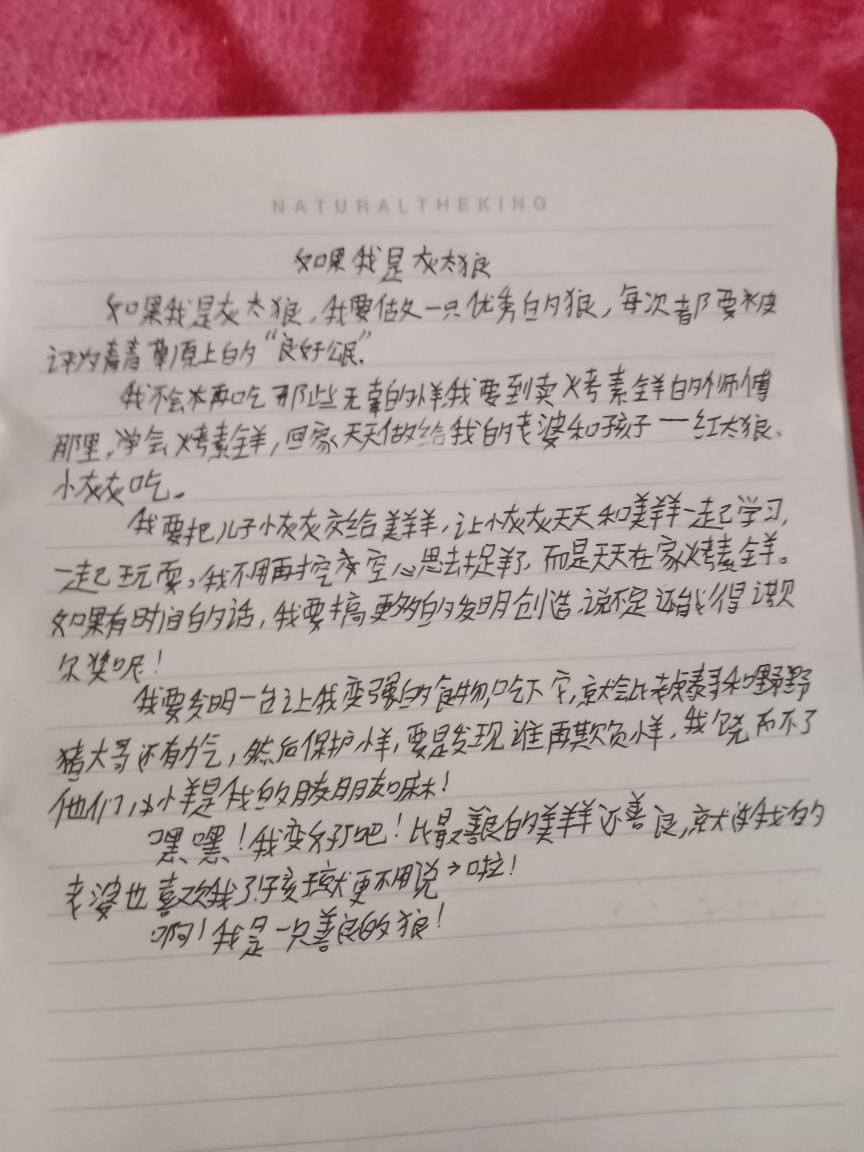 NATURALTHEKING
如果我是灰太狼
如果我是灰太狼,我要做一只优秀的狼,每次都要被
评为青青草原上的“良好公民”。
我不会再吃那些无辜的小羊,我要到卖烤素全羊的师傅
那里,学会烤素全羊,回家天天做给我的老婆和孩子——红太狼、
小灰灰吃。
我要把儿子小灰灰交给美羊羊,让小灰灰天天和美羊羊一起学习,
一起玩耍。我不用再挖空心思去捉羊了,而是天天在家烤素全羊。
如果有时间的话,我要搞更多的发明创造,说不定还能得诺贝
尔奖呢!
我要发明一台让我变强的食物,吃下它,就会比老虎泰哥和野
猪大哥还有力气,然后保护小羊,要是发现谁再欺负小羊,我饶不了
他们,小羊是我的朋友嘛!
嘿嘿!我变好了吧!比最善良的美羊羊还善良,就连我的
老婆也喜欢我了!孩子就更不用说啦!
啊!我是一只善良的狼!